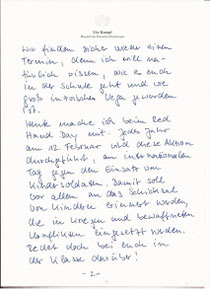 Ute Kumpf
Mitglied des Deutschen Bundestages
wir finden sicher wieder einen
Termin, denn ich will na-
türlich wissen, wie es euch
in der Schule geht und wie
groß inzwischen geworden
ist.
Heute mache ich beim Red
Hand Day mit. Jedes Jahr
am 12. Februar wird diese Aktion
durchgeführt, am internationalen
Tag gegen den Einsatz von
Kindersoldaten. Damit soll
vor allem an das Schicksal
von Kindern erinnert werden,
die in Kriegen und bewaffneten
Konflikten eingesetzt werden.
Redet doch bei euch in
der Klasse darüber!
-2-